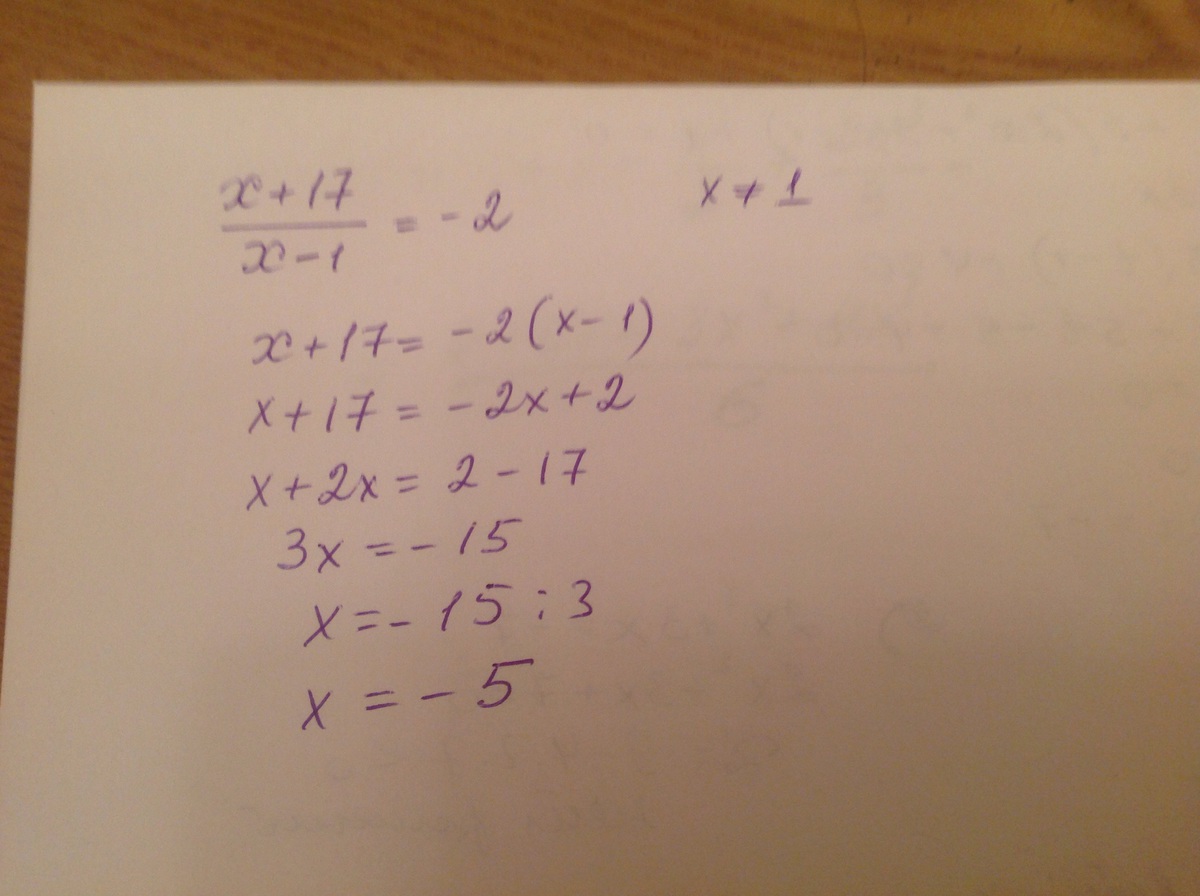 x+17/x-1 = -2    x ≠ 1
x+17 = -2(x-1)
x+17 = -2x+2
x+2x = 2-17
3x = -15
x = -15 : 3
x = -5